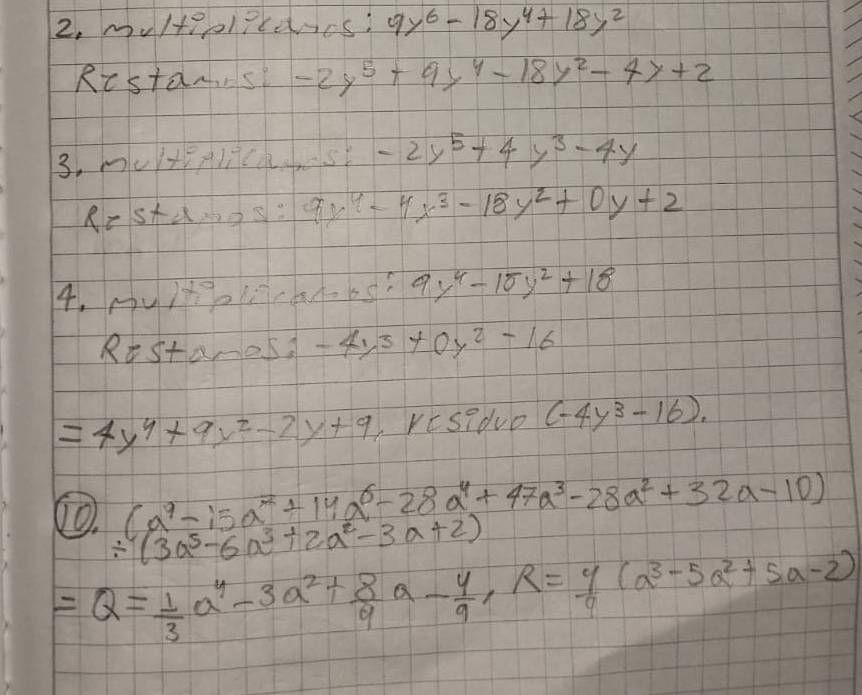 2. multiplicamos: 9y⁶ - 18y⁴ + 18y²
Restamos: -2y⁵ + 9y⁴ - 18y² - 4y + 2
3. multiplicamos: -2y⁵ + 4y³ - 4y
Restamos: 9y⁴ - 4y³ - 18y² + 0y + 2
4. multiplicamos: 9y⁴ - 18y² + 18
Restamos: -4y³ + 0y² - 16
= 4y⁴ + 9y² - 2y + 9, residuo (-4y³ - 16).
10. (a⁹ - 15a⁷ + 14a⁶ - 28a⁴ + 47a³ - 28a² + 32a - 10)
÷ (3a⁵ - 6a³ + 2a² - 3a + 2)
= Q = 1/3 a⁴ - 3a² + 8/9 a - 4/9, R = 4/9 (a³ - 5a² + 5a - 2)